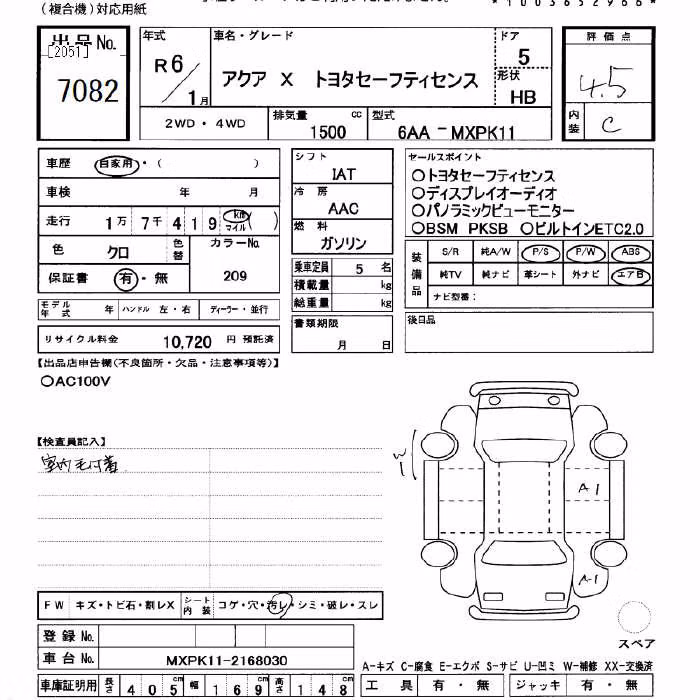 (複合機)対応用紙
出品No.
[2051]
7082
年式
R6/1月
車名・グレード
アクア X トヨタセーフティセンス
ドア
5
形状
HB
評価点
4.5
内装
C
2WD・4WD
排気量
1500 cc
型式
6AA-MXPK11
車歴 自家用・( )
車検 年 月
走行 1万7千419km マイル( )
色 クロ 色替
カラーNo.
209
保証書 有・無
モデル年式 年 ハンドル 左・右 ディーラー・並行
リサイクル料金 10,720 円 預託済
シフト
IAT
冷房
AAC
燃料
ガソリン
乗車定員 5 名
積載量 kg
総重量 kg
書類期限
月 日
セールスポイント
○トヨタセーフティセンス
○ディスプレイオーディオ
○パノラミックビューモニター
○BSM PKSB ○ビルトインETC2.0
装備品
S/R 純A/W P/S P/W ABS
純TV 純ナビ 革シート 外ナビ エアB
ナビ型番:
後日品
【出品店申告欄(不良箇所・欠品・注意事項等)】
○AC100V
【検査員記入】
室内毛付着
W
A-1
A-1
FW キズ・トビ石・割レX シート内装 コゲ・穴・汚レ・シミ・破レ・スレ
スペア
登録No.
車台No. MXPK11-2168030
車庫証明用 長さ 405cm 幅 169cm 高さ 148cm
A-キズ C-腐食 E-エクボ S-サビ U-凹ミ W-補修 XX-交換済
工具 有・無 ジャッキ 有・無